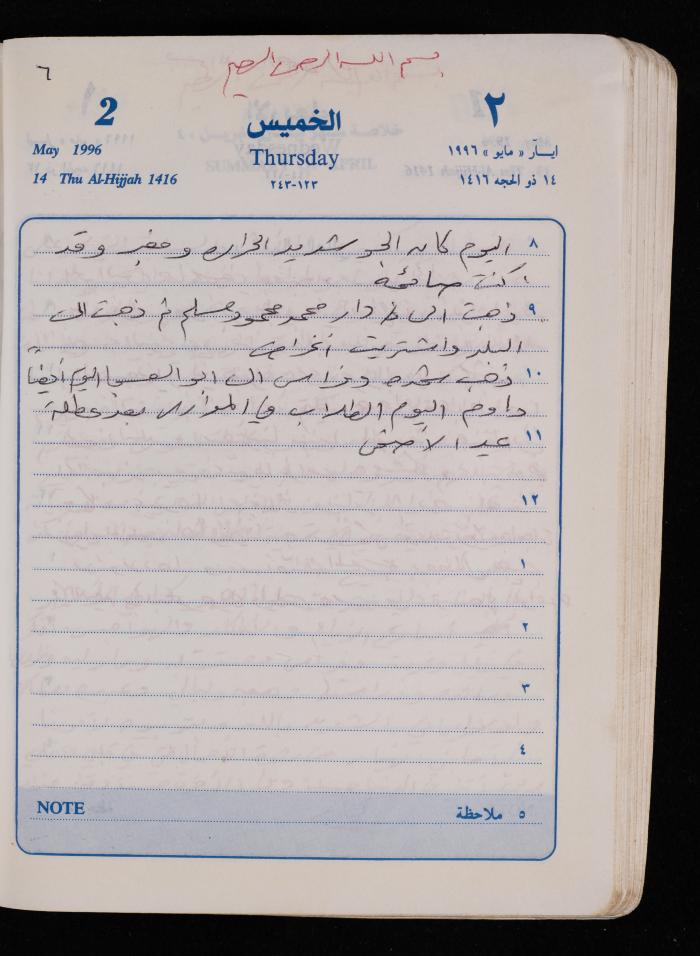 بسم الله الرحمن الرحيم
٦
2 الخميس ٢
May 1996 Thursday ايار « مايو » ١٩٩٦
14 Thu Al-Hijjah 1416 ٢٤٣-١٢٣ ١٤ ذو الحجه ١٤١٦
٨ اليوم كان الجو شديد الحراره و مغبر وقد
كنت صائمة
٩ ذهبت الى دار محمد محمود مسلم ثم ذهبت الى
البلد واشتريت أغراض
١٠ ذهب وفراس الى ابو اليوم أيضاً
داوم اليوم الطلاب في المدارس بعد عطلة
١١ عيد الأضحى
١٢
١
٢
٣
٤
NOTE ٥ ملاحظة